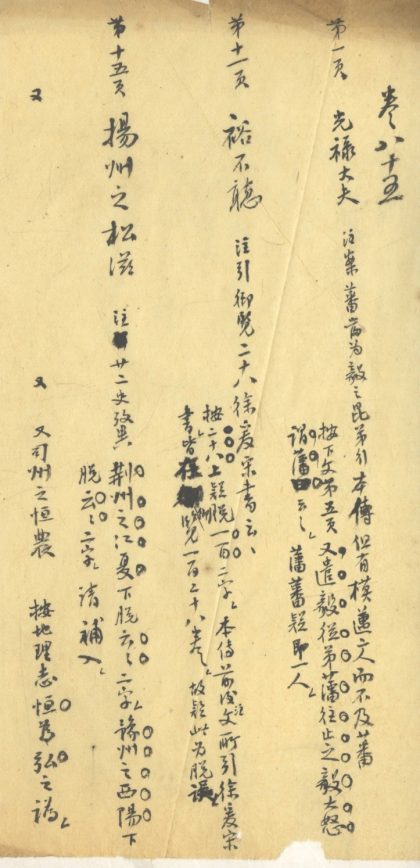 卷八十五
第一页 光禄大夫 注案蕃当为毅之昆弟引本傳但有模邁二人而不及蕃
按下文第五页又遣毅從弟藩往止之毅大怒
謂藩曰云云 藩蕃疑即一人
第十一页 裕不聽 注引御覽二十八徐爰宋書云云
按二十八上疑脱一百二字 本傳前後文注所引徐爰宋
書皆御覽一百二十八卷 故疑此为脱誤
第十五页 揚州之松滋 注廿二史攷異 荆州之江夏下脱云云二字 豫州之西陽下
脱云云二字 请補入
又 又 又司州之恒農 按地理志恒为弘之譌